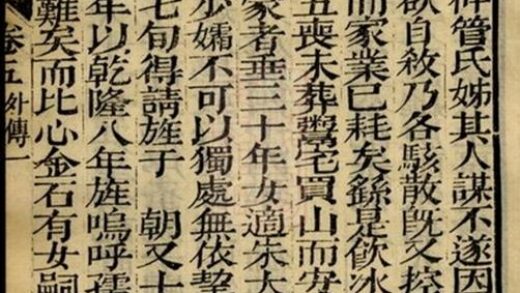 裨管氏姊其人謀不遂因
欲自敘乃各駭散旣又控
而家業已耗矣繇是飲冰
五喪未葬鬻宅買山而安
家者垂三十年女適朱大
少孀不可以獨處無依挈
七旬得請旌于　朝又十
年以乾隆八年旌嗚呼孺
難矣而比心金石有女嗣
卷五外傳一